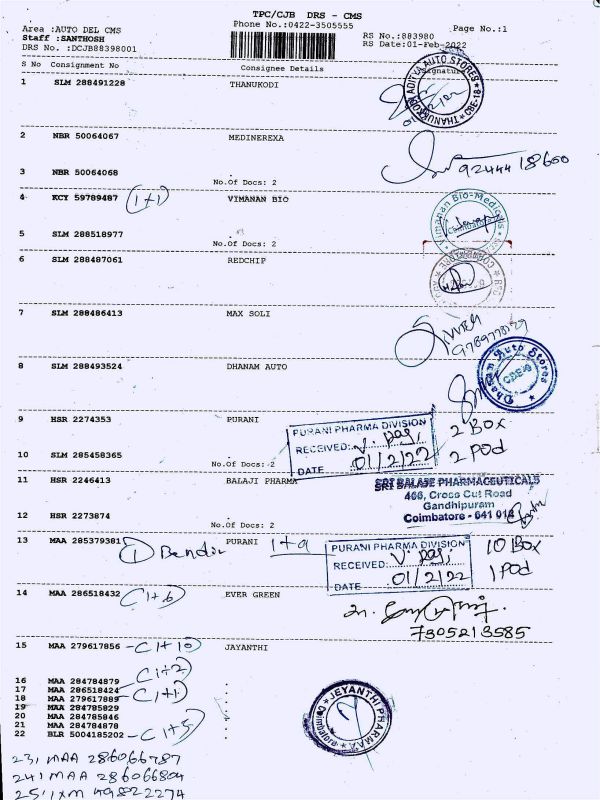 TPC/CJB DRS - CMS
Phone No.:0422-3505555
Page No.:1
Area :AUTO DEL CMS
Staff :SANTHOSH
DRS No. :DCJB88398001
RS No.:883980
RS Date:01-Feb-2022
S No Consignment No Consignee Details Signature
1 SLM 288491228 THANUKODI
ADITYA AUTO STORES
THANUKODI
CBE-18
2 NBR 50064067 MEDINEREXA
92444 18600
3 NBR 50064068
No.Of Docs: 2
4 KCY 59789487 (1+1) VIMANAN BIO
Vimanan Bio-Medicals
Coimbatore
5 SLM 288518977
No.Of Docs: 2
6 SLM 288487061 REDCHIP
7 SLM 288486413 MAX SOLI
8 SLM 288493524 DHANAM AUTO
Dhanam Auto Stores
9 HSR 2274353 PURANI
PURANI PHARMA DIVISION
RECEIVED:
DATE 01/2/22
2 BOX
2 POD
10 SLM 285458365
No.Of Docs: 2
11 HSR 2246413 BALAJI PHARMA
SRI BALAJE PHARMACEUTICALS
466, Cross Cut Road
Gandhipuram
Coimbatore - 641 012
12 HSR 2273874
No.Of Docs: 2
13 MAA 285379381 PURANI 1+9
1 Bendir
PURANI PHARMA DIVISION
RECEIVED:
DATE 01/2/22
10 BOX
1 POD
14 MAA 286518432 (1+6) EVER GREEN
7305213585
15 MAA 279617856 - (1+10) JAYANTHI
16 MAA 284784879 (1+2)
17 MAA 286518424
18 MAA 279617889 - (1+1)
19 MAA 284785829
20 MAA 284785846
21 MAA 284784878
22 BLR 5004185202 - (1+5)
JEYANTHI PHARMAA
Coimbatore
23, MAA 286066787
24, MAA 286066804
25, IXM 49822274